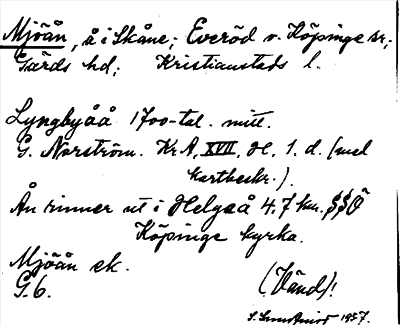 Mjöån, å i Skåne; Everöd o. Köpinge sr;
Gärds hd; Kristianstads l.
Lyngbyåå 1700-tal. mitt.
G. Norström. Kr A, XVII, H, 1. d. (med
kartbeskr.).
Ån rinner ut i Helgeå 4,7 km. SSÖ
Köpinge kyrka.
Mjöån ek.
G.6.
(Vänd)!
1957.